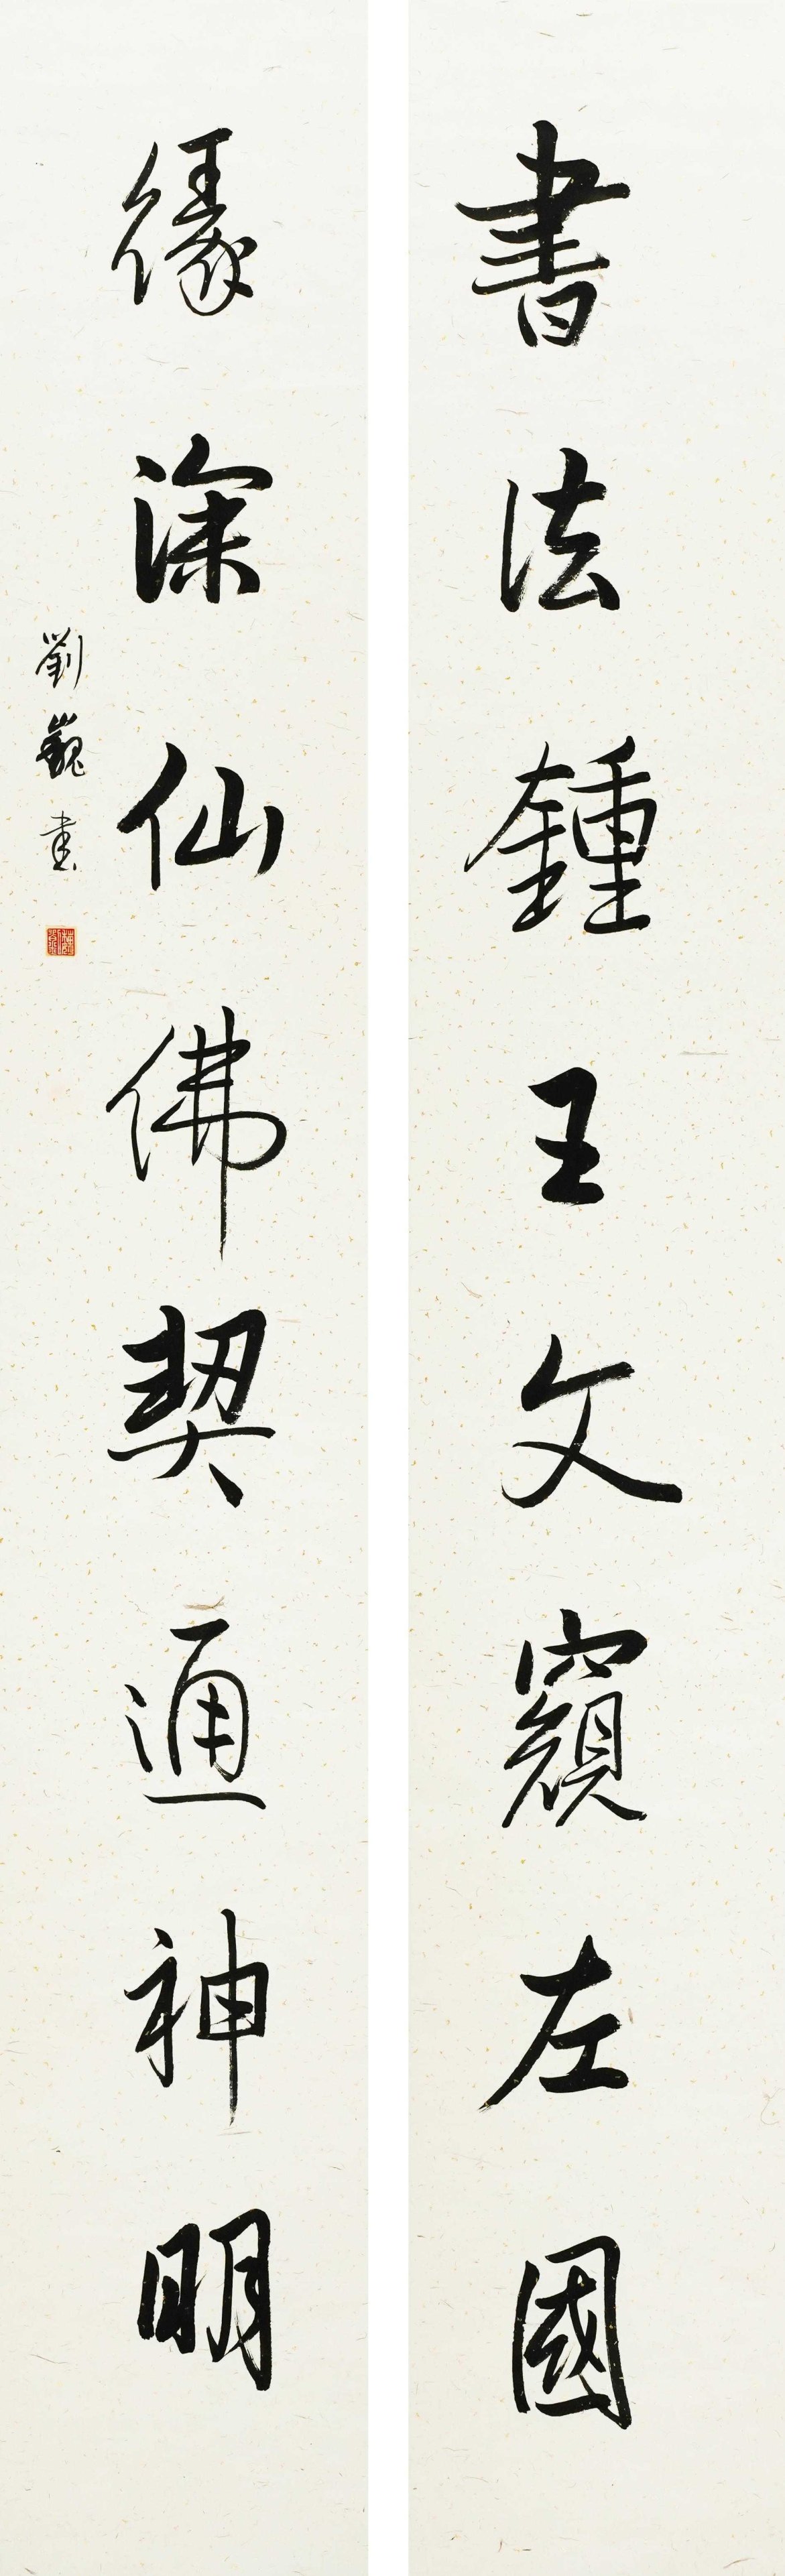 書法鍾王文窺左國
緣深仙佛契通神明
劉巍書